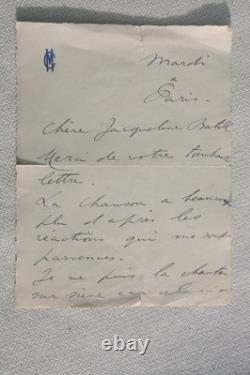 Mardi
à
Paris.
Chère Jacqueline Batell
Merci de votre touchante
lettre.
La chanson a beaucoup
plu d'après les
réactions qui me sont
parvenues.
Je ne puis la chanter
sur scène car
www.ebay-ttc.fr